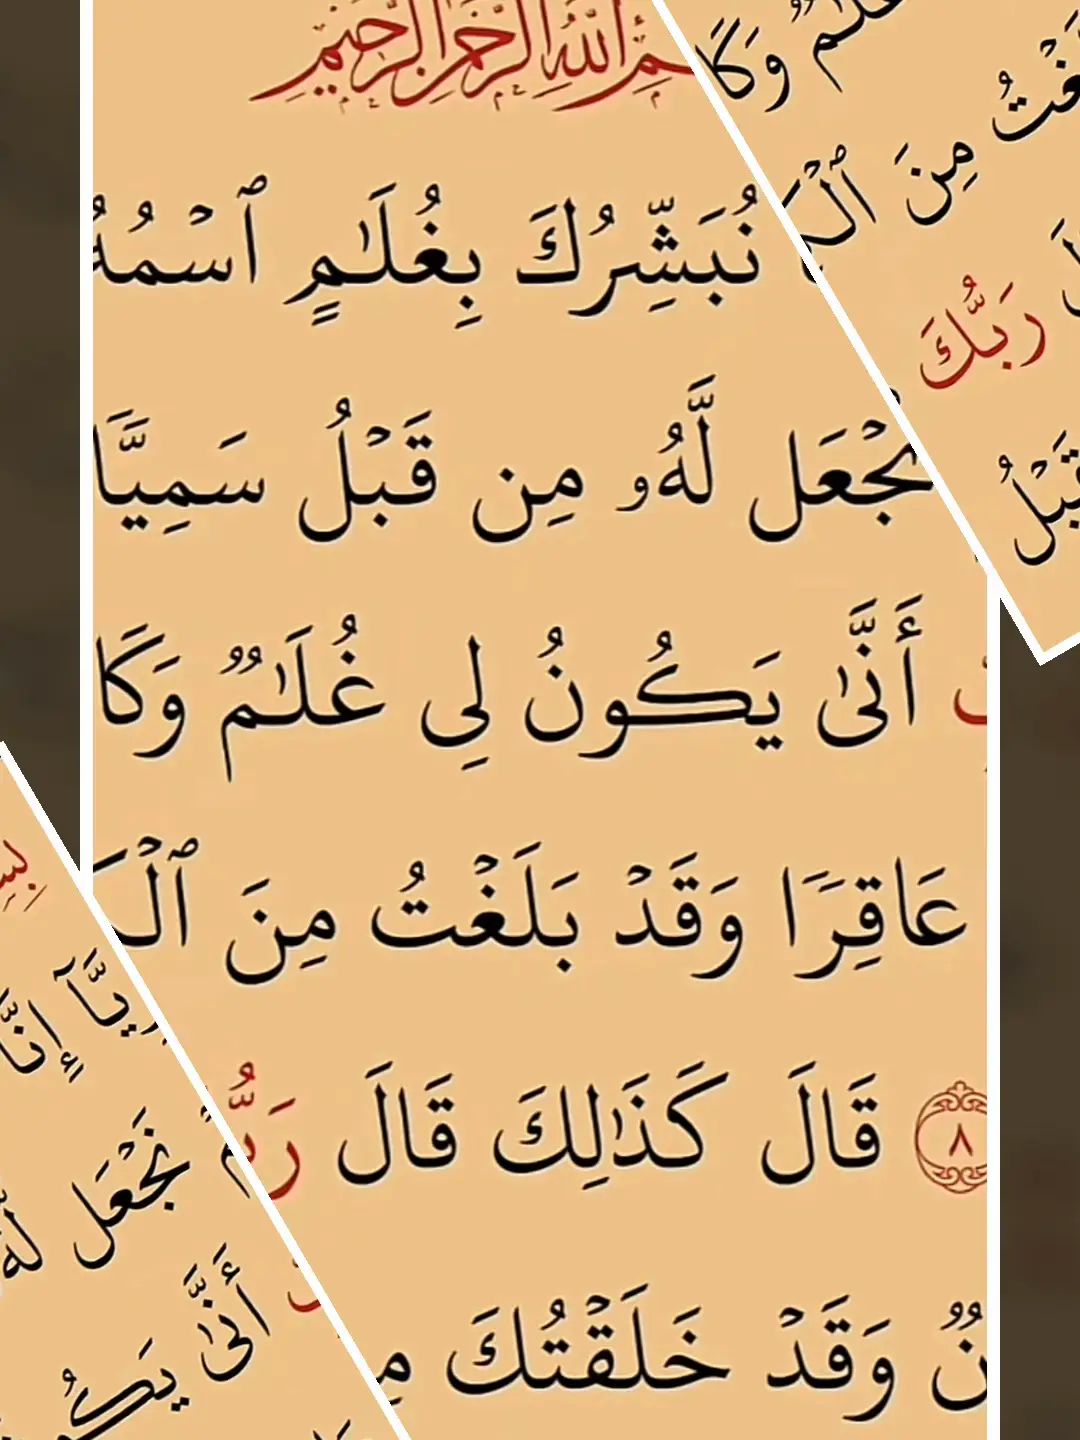 ٱللَّهِ ٱلرَّحْمَٰنِ ٱلرَّحِيمِ
نُبَشِّرُكَ بِغُلَٰمٍ ٱسْمُهُ
نَجْعَل لَّهُۥ مِن قَبْلُ سَمِيًّا
أَنَّىٰ يَكُونُ لِى غُلَٰمٌ وَكَا
عَاقِرًا وَقَدْ بَلَغْتُ مِنَ ٱلْكِ
٨ قَالَ كَذَٰلِكَ قَالَ رَبُّ
نٌ وَقَدْ خَلَقْتُكَ مِ
غُلَٰمٌ وَكَا
بَلَغْتُ مِنَ ٱلْكِ
رَبُّكَ
قَبْلُ
بِسْ
إِنَّا
نَجْعَل لَّهُ
أَنَّىٰ يَكُو